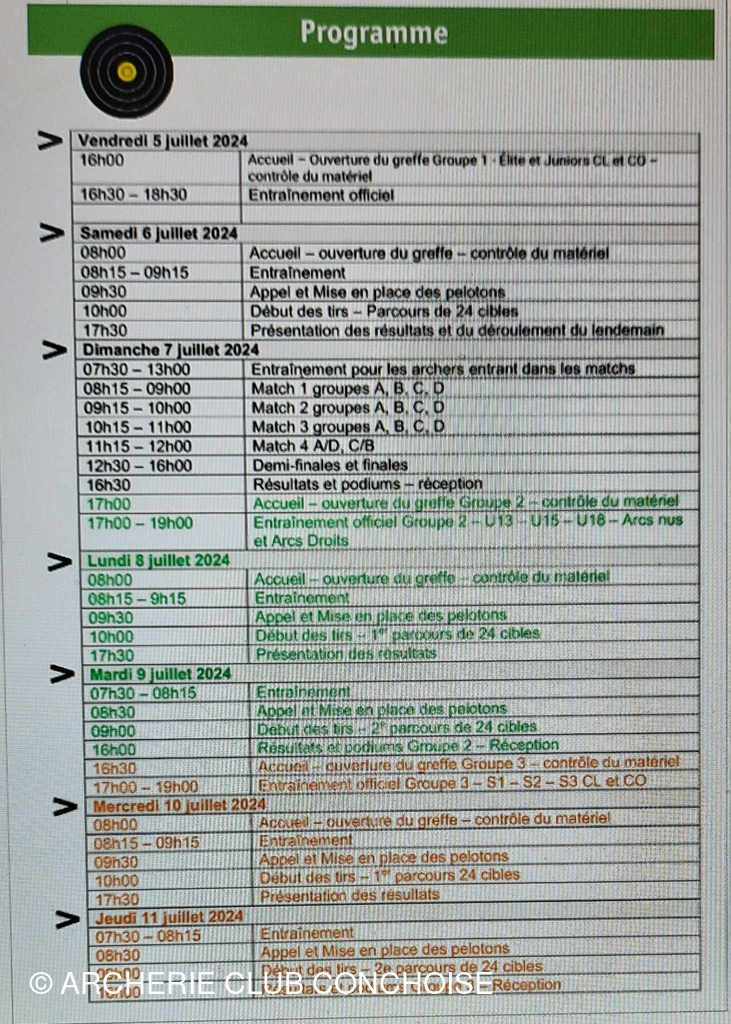 Programme
> Vendredi 5 juillet 2024
16h00 Accueil – Ouverture du greffe Groupe 1 - Élite et Juniors CL et CO –
contrôle du matériel
16h30 – 18h30 Entraînement officiel
> Samedi 6 juillet 2024
08h00 Accueil – ouverture du greffe – contrôle du matériel
08h15 – 09h15 Entraînement
09h30 Appel et Mise en place des pelotons
10h00 Début des tirs – Parcours de 24 cibles
17h30 Présentation des résultats et du déroulement du lendemain
> Dimanche 7 juillet 2024
07h30 – 13h00 Entraînement pour les archers entrant dans les matchs
08h15 – 09h00 Match 1 groupes A, B, C, D
09h15 – 10h00 Match 2 groupes A, B, C, D
10h15 – 11h00 Match 3 groupes A, B, C, D
11h15 – 12h00 Match 4 A/D, C/B
12h30 – 16h00 Demi-finales et finales
16h30 Résultats et podiums – réception
17h00 Accueil – ouverture du greffe Groupe 2 – contrôle du matériel
17h00 – 19h00 Entraînement officiel Groupe 2 – U13 – U15 – U18 – Arcs nus
et Arcs Droits
> Lundi 8 juillet 2024
08h00 Accueil – ouverture du greffe – contrôle du matériel
08h15 – 9h15 Entraînement
09h30 Appel et Mise en place des pelotons
10h00 Début des tirs – 1er parcours de 24 cibles
17h30 Présentation des résultats
> Mardi 9 juillet 2024
07h30 – 08h15 Entraînement
08h30 Appel et Mise en place des pelotons
09h00 Début des tirs – 2e parcours de 24 cibles
16h00 Résultats et podiums Groupe 2 – Réception
16h30 Accueil – ouverture du greffe Groupe 3 – contrôle du matériel
17h00 – 19h00 Entraînement officiel Groupe 3 – S1 – S2 – S3 CL et CO
> Mercredi 10 juillet 2024
08h00 Accueil – ouverture du greffe – contrôle du matériel
08h15 – 09h15 Entraînement
09h30 Appel et Mise en place des pelotons
10h00 Début des tirs – 1er parcours 24 cibles
17h30 Présentation des résultats
> Jeudi 11 juillet 2024
07h30 – 08h15 Entraînement
08h30 Appel et Mise en place des pelotons
Début des tirs – 2e parcours de 24 cibles
16h00 Réception
© ARCHERIE CLUB CONCHOISE